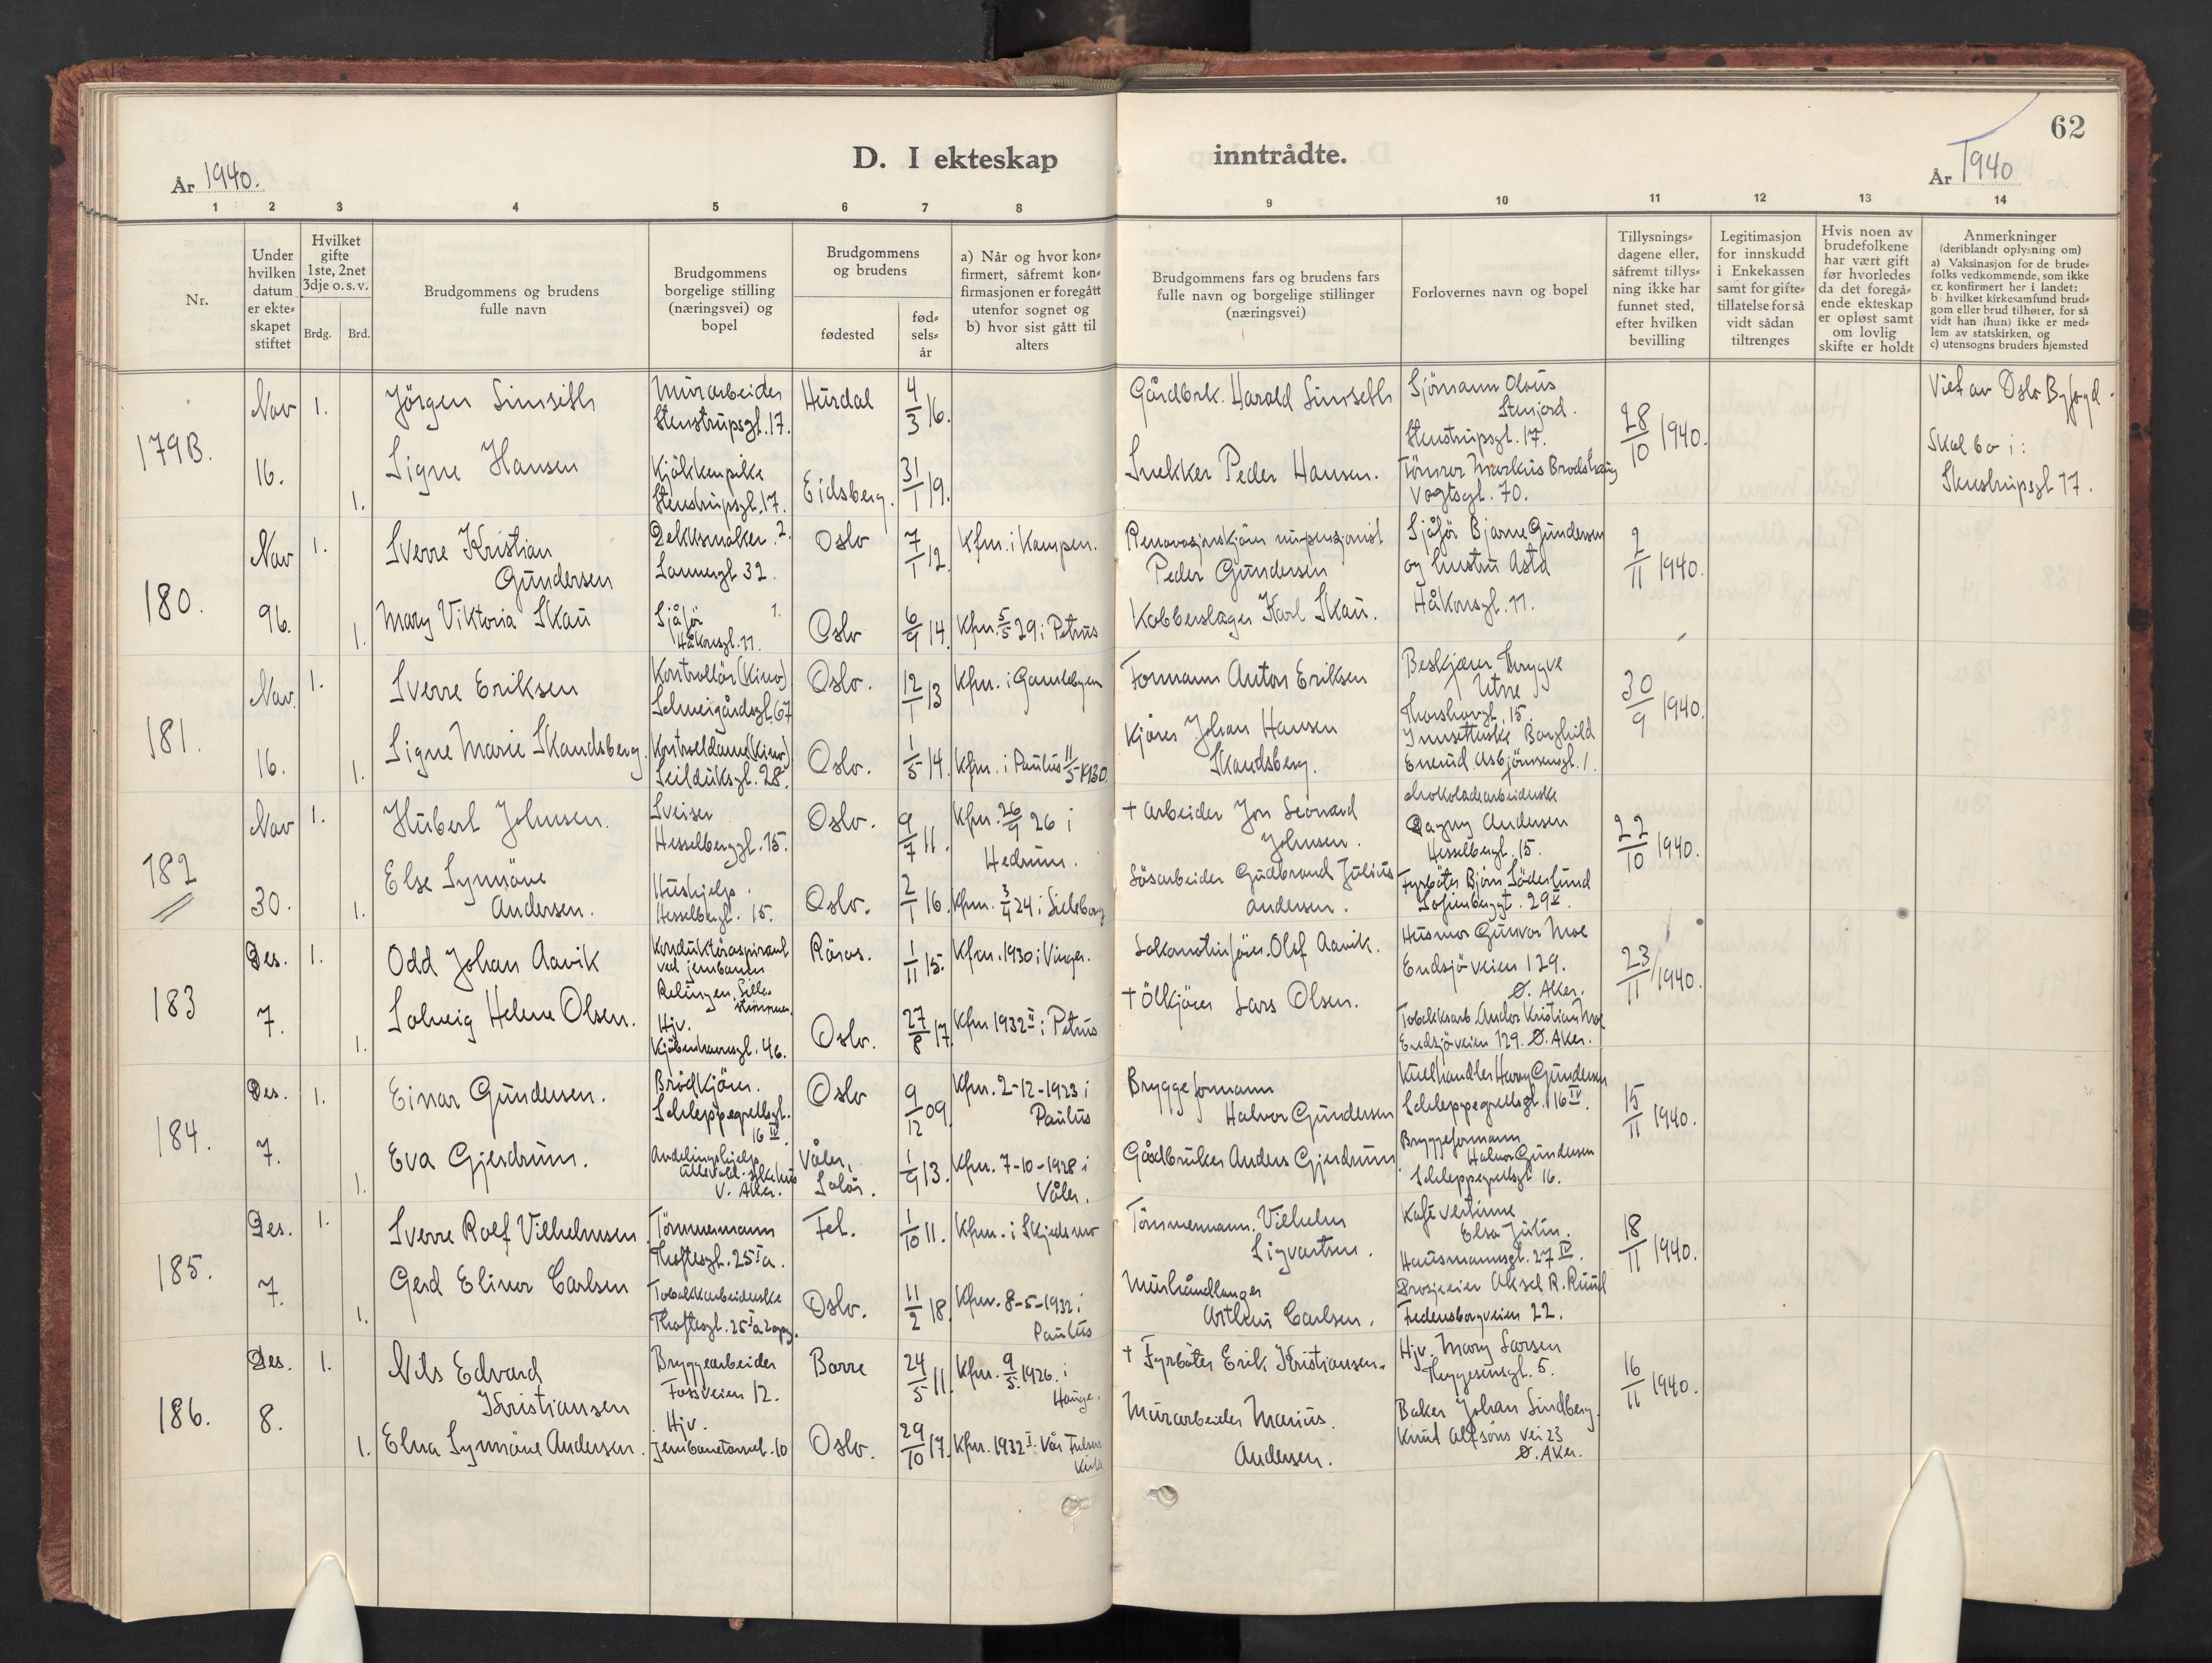 62
D. I ekteskap inntrådte.
År 1940.
År 1940
1 2 3 4 5 6 7 8 9 10 11 12 13 14
Nr.
Under hvilken datum er ekteskapet stiftet
Hvilket gifte 1ste, 2net 3dje o. s. v.
Brdg. Brd.
Brudgommens og brudens fulle navn
Brudgommens borgelige stilling (næringsvei) og bopel
Brudgommens og brudens
fødested
fødselsår
a) Når og hvor konfirmert, såfremt konfirmasjonen er foregått utenfor sognet og
b) hvor sist gått til alters
Brudgommens fars og brudens fars fulle navn og borgelige stillinger (næringsvei)
Forlovernes navn og bopel
Tillysningsdagene eller, såfremt tillysning ikke har funnet sted, efter hvilken bevilling
Legitimasjon for innskudd i Enkekassen samt for giftetillatelse for så vidt sådan tiltrenges
Hvis noen av brudefolkene har vært gift før hvorledes da det foregående ekteskap er opløst samt om lovlig skifte er holdt
Anmerkninger
(deriblandt oplysning om)
a) Vaksinasjon for de brudefolks vedkommende, som ikke er konfirmert her i landet:
b) hvilket kirkesamfund brudgom eller brud tilhører, for så vidt han (hun) ikke er medlem av statskirken, og
c) utensogns bruders hjemsted
179B.
Nov 16.
1. Jörgen Simseth
Murarbeider
Stenstrupsgt. 17.
Hurdal
4/3 16.
Gårdbrk. Harald Simseth
Sjömann Olaus
Stenjord.
Stenstrupsgt. 17.
28/10 1940.
Viet av Oslo Byfogd.
Skal bo i:
Stenstrupsgt 17.
1. Signe Hansen
Kjökkenpike
Stenstrupsgt. 17.
Eidsberg.
31/1 19.
Snekker Peder Hansen.
Tömrer Markus
Vogtsgt. 70.
180.
Nov 96.
1. Sverre Kristian
Gundersen
Sannergt 32.
Oslo
7/1 12.
Kfm. i Kampen.
Peder Gundersen
Sjåfør Bjarne Gundersen
og hustru Asta
Håkonsgt. 11.
2/11 1940.
1. Mary Viktoria Skau
Sjåfør
Håkonsgt. 11.
Oslo
6/9 14.
Kfm. 5/5 29 i Petrus
Kobberslager Karl Skau.
181.
Nov. 16.
1. Sverre Eriksen
Kontrollör (Kino)
Schweigårdsgt. 67
Oslo.
12/1 13
Kfm. i Gamlebyen
Formann Anton Eriksen
Beskjærer Trygve
Utne
Thorshovgt. 15.
30/9 1940.
1. Signe Marie Skandsberg.
Kontroldame (Kino)
Seilduksgt. 28.
Oslo.
1/5 14.
Kfm. i Paulus 11/5 1930.
Kjörer Johan Hansen
Skandsberg.
Innsetterske Borghild
Enerud. Asbjörnsensgt. 1.
182
Nov 30.
1. Hubert Johnsen.
Sveiser
Hesselberggt. 15.
Oslo.
9/7 11.
Kfm. 26/9 26 i
Hedrum.
† Arbeider Jon Leonard
Johnsen.
Chokoladearbeiderske
Dagny Andersen
Hesselbergt. 15.
22/10 1940.
1. Else Synnöve
Andersen.
Hushjelp.
Hesselbergt. 15.
Oslo.
2/1 16.
Gudbrand Julius
Andersen.
Fyrböter Björn Söderlund
Sofienberggt. 29
183
Des. 7.
1. Odd Johan Aavik
Konduktöraspirant
ved jernbanen
Röros.
1/11 15.
Kfm. 1930 i Vinger.
Lokomotivförer. Olof Aavik.
Husmor Gunvor Moe
Ensjöveien 129.
Ø. Aker.
23/11 1940.
1. Solveig Helene Olsen.
Hjv.
Kjöbenhavnsgt. 46.
Oslo.
27/8 17.
Kfm 1932 II i Petrus
† Ölkjörer Lars Olsen.
Tobakksarb. Anders Kristian Moe
Ensjöveien 129. Ø. Aker.
184.
Des. 7.
1. Einar Gundersen.
Brödkjörer.
Schleppegrellsgt.
16 IV.
Oslo
9/12 09.
Kfm. 2-12-1923 i
Paulus
Bryggeformann
Halvor Gundersen
Kullhandler Harry Gundersen
Schleppegrellsgt. 16 IV.
15/11 1940.
1. Eva Gjerdrum.
Avdelingshjelp
Ullevål. sykehus
V. Aker.
Våler,
Solör.
1/9 13.
Kfm. 7-10-1928 i
Våler.
Gårdbruker Anders Gjerdrum
Bryggeformann
Halvor Gundersen
Schleppegrellsgt 16.
185.
Des. 7.
1. Sverre Rolf Vilhelmsen
Tömmermann
Toftesgt. 25 I a.
Fet.
1/10 11.
Kfm. i Skjedsmo
Tömmermann. Vilhelm
Sigvartsen.
Kafévertinne
Elsa Julin.
Hausmannsgt. 27 IV.
18/11 1940.
1. Gerd Elinor Carlsen
Tobakkarbeiderske
Toftesgt. 25 I a 2 oppg.
Oslo.
11/2 18.
Kfm. 8-5-1932 i
Paulus
Murhåndlanger
Arthur Carlsen.
Drosjeeier Aksel R. Ruud
Fredensborgveien 22.
186.
Des. 8.
1. Nils Edvard
Kristiansen
Bryggearbeider
Fossveien 12.
Borre
24/5 11.
Kfm. 9/5. 1926. i
Hauge.
† Fyrböter Erik Kristiansen.
Hjv. Mary Larsen
Heggesensgt. 5.
16/11 1940.
1. Elna Synnöve Andersen.
Hjv.
Jernbanetorvet. 10
Oslo.
29/10 17.
Kfm. 1932 I. Vår Frelsers
Kirke
Murarbeider Marius.
Andersen.
Baker Johan Lindberg.
Knut Alfsöns vei 23
Ø. Aker.